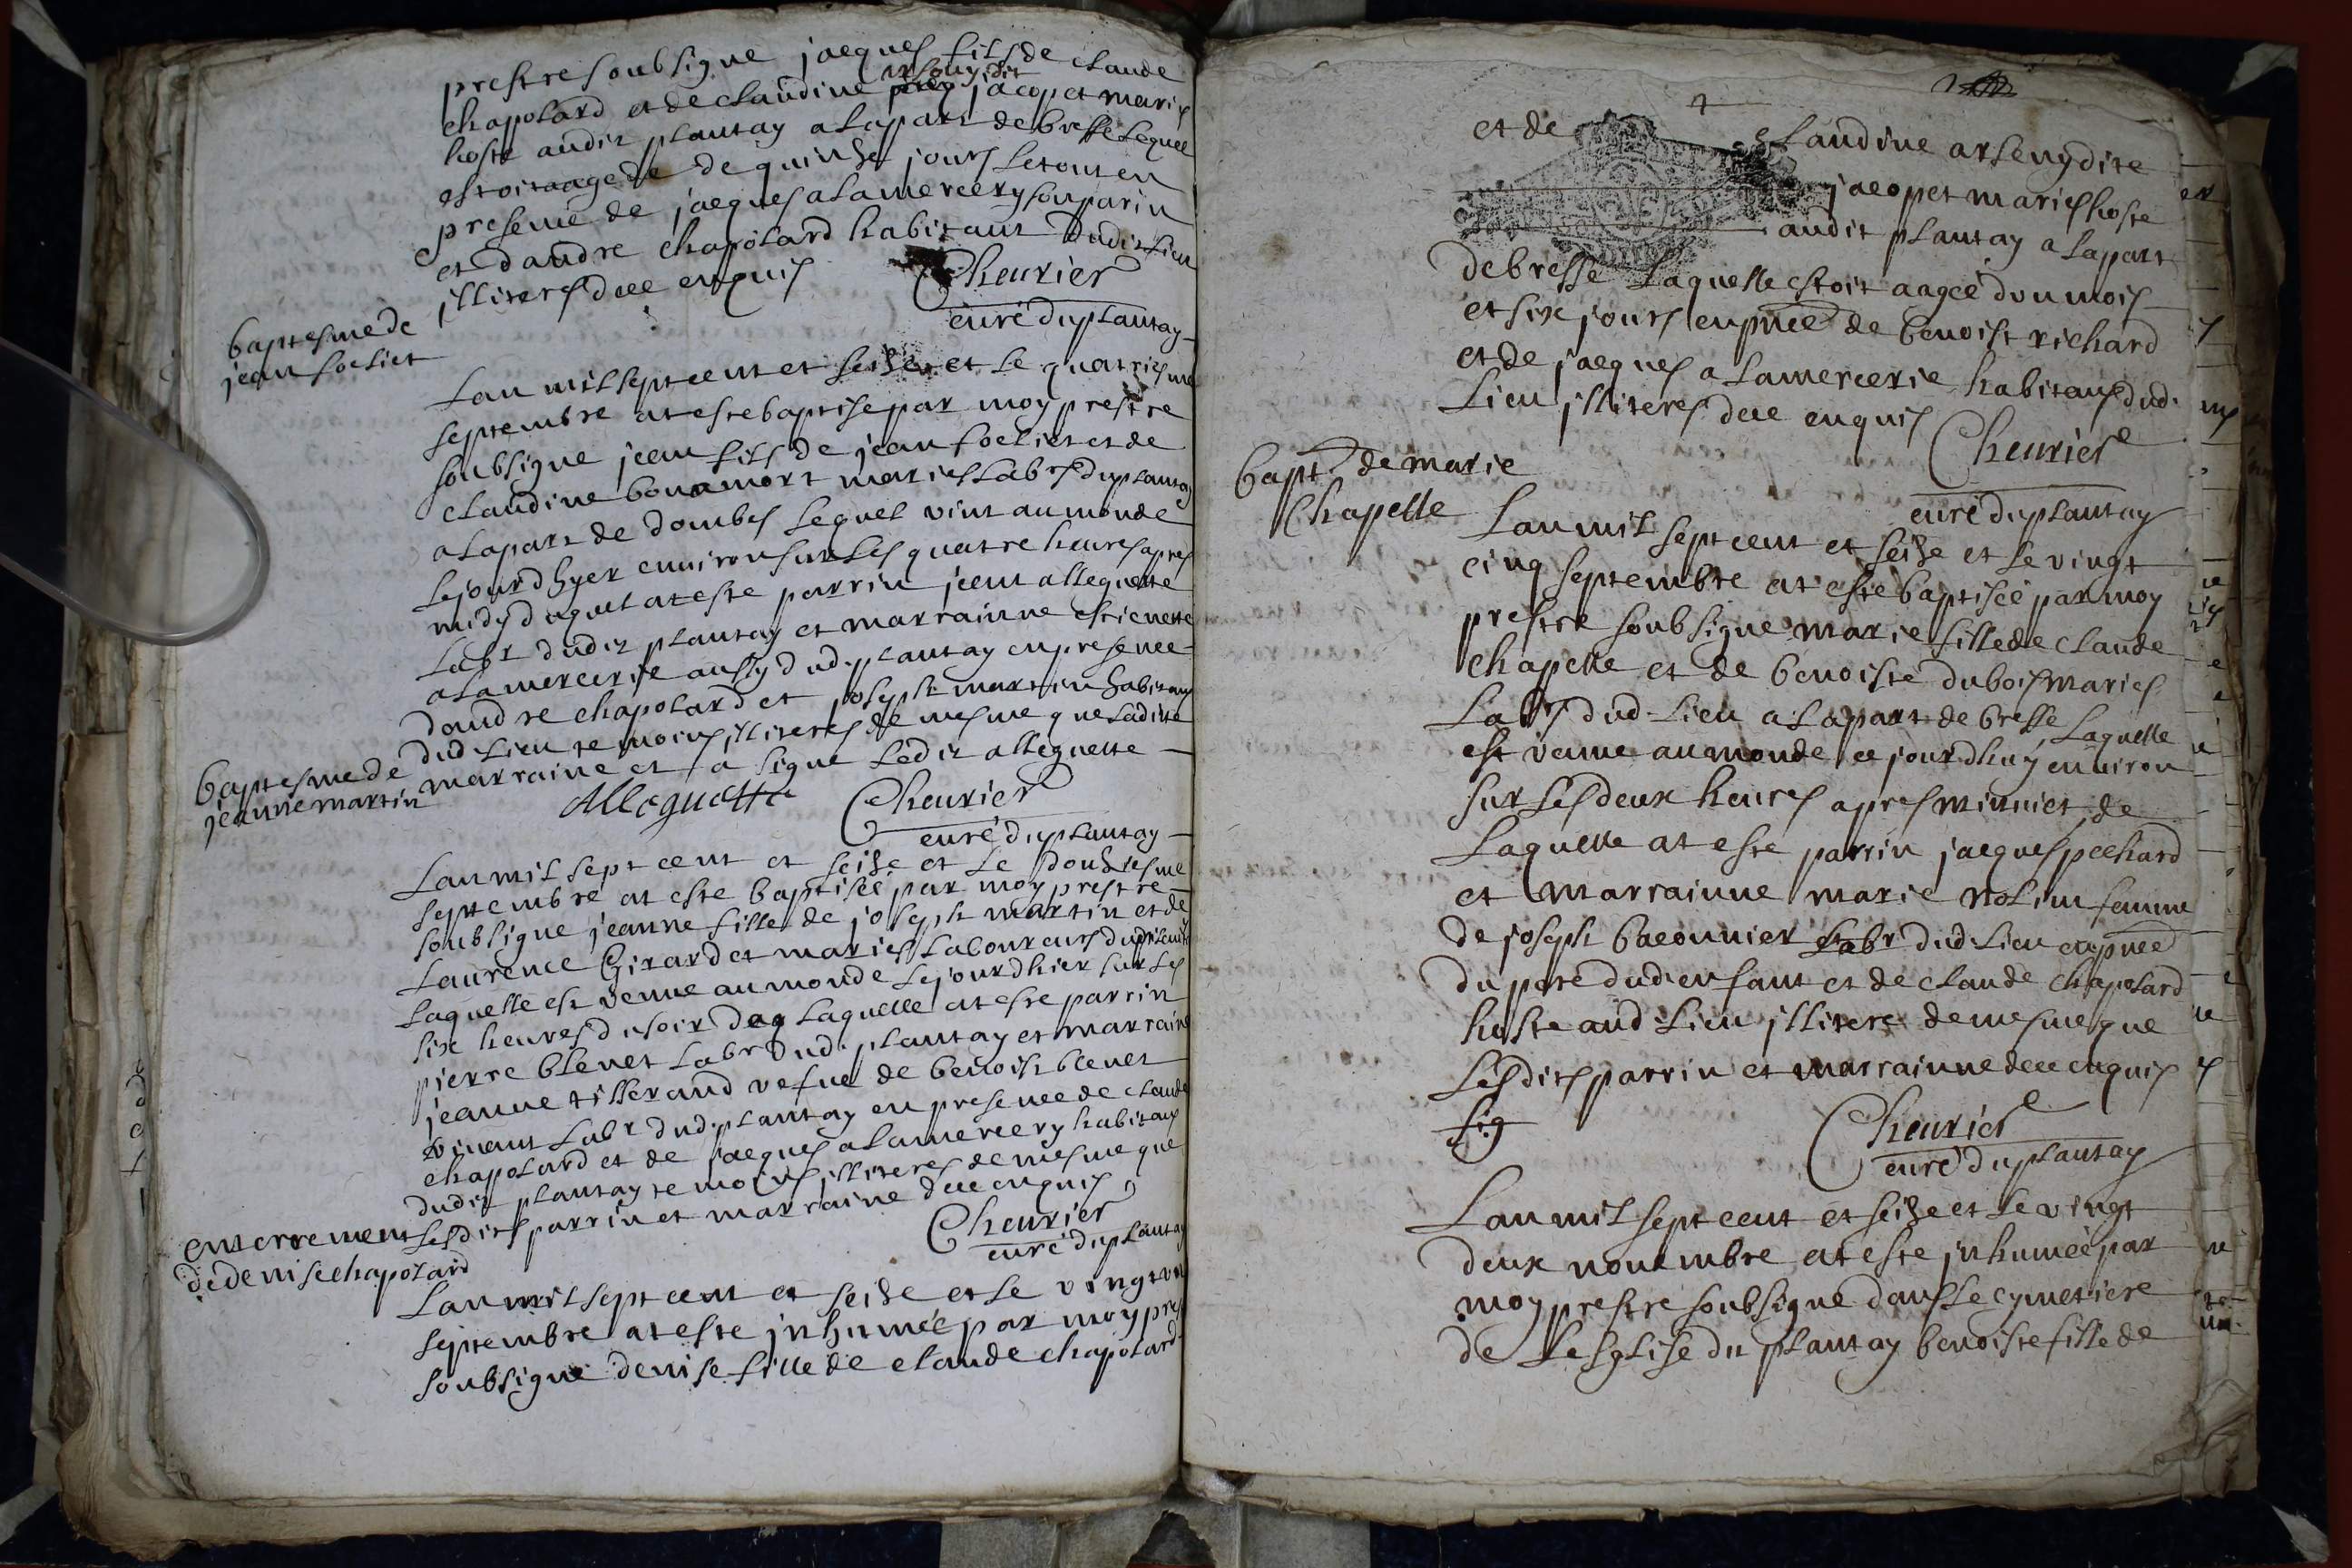 prestre soubsigne jacques fils de claude
chapolard et de claudine arseny dit jacopet mariés
hoste audit plantay a la part de bresse lequel
estoit aage de quinze jours le tout en
presence de jacques alamercery son parin
et dandre chapolard habitant dudit lieu
illiteres dece enquis Cheurier
curé du plantay
baptesme de
jean foeliet
Lan mil sept cent et seize et le quatriesme
septembre at este baptise par moy prestre
soubsigne jean fils de jean foeliet et de
claudine bonamort mariés labrs du plantay
a la part de dombes lequel vint au monde
le jour dhyer environ sur les quatre heures apres
midy duquel at este parrin jean alleguette
labr dudit plantay et marrainne estienette
alamercerie aussy dud. plantay en presence
dandre chapolard et joseph martin habitans
dud. lieu temoins illiteres de mesme que ladite
marraine et a signe ledit alleguette
Alleguette Cheurier
curé du plantay
baptesme de
jeanne martin
Lan mil sept cent et seize et le douziesme
septembre at este baptisée par moy prestre
soubsigne jeanne fille de joseph martin et de
laurence Girardet mariés laboureurs dud.
laquelle est venue au monde le jour dhier sur les
six heures du soir de laquelle at este parrin
pierre blenet labr dud. plantay et marraine
jeanne tisserand vefue de benoist blenet
vivant labr dud. plantay en presence de claude
chapolard et de jacques alamercery habitans
dudit plantay temoins illiteres de mesme que
lesdits parrin et marraine dece enquis
Cheurier
curé du plantay
enterrement
de denise chapolard
Lan mil sept cent et seize et le vingt un
septembre at este inhumée par moy pre
soubsigne denise fille de claude chapolard
et de claudine arseny dite
jacopet mariés hoste
audit plantay a la part
de bresse laquelle estoit aagée dun mois
et six jours en pnce de benoist richard
et de jacques alamercerie habitans dud.
lieu illiteres dece enquis
Cheurier
curé du plantay
bapt. de marie
Chapelle
Lan mil sept cent et seize et le vingt
cinq septembre at este baptisée par moy
prestre soubsigne marie fille de claude
chapelle et de benoiste dubois mariés
labrs dud. lieu a la part de bresse laquelle
est venue au monde ce jourdhuy environ
sur les deux heures apres minuict de
laquelle at este parrin jacques pechard
et marrainne marie nolin femme
de joseph baconnier labr dud. lieu en pnce
du pere dud. enfant et de claude chapolard
hoste aud. lieu illitere de mesme que
lesdits parrin et marrainne dece enquis
sig
Cheurier
curé du plantay
Lan mil sept cent et seize et le vingt
deux novembre at este inhumée par
moy prestre soubsigne dans le cymetiere
de lesglise du plantay benoiste fille de